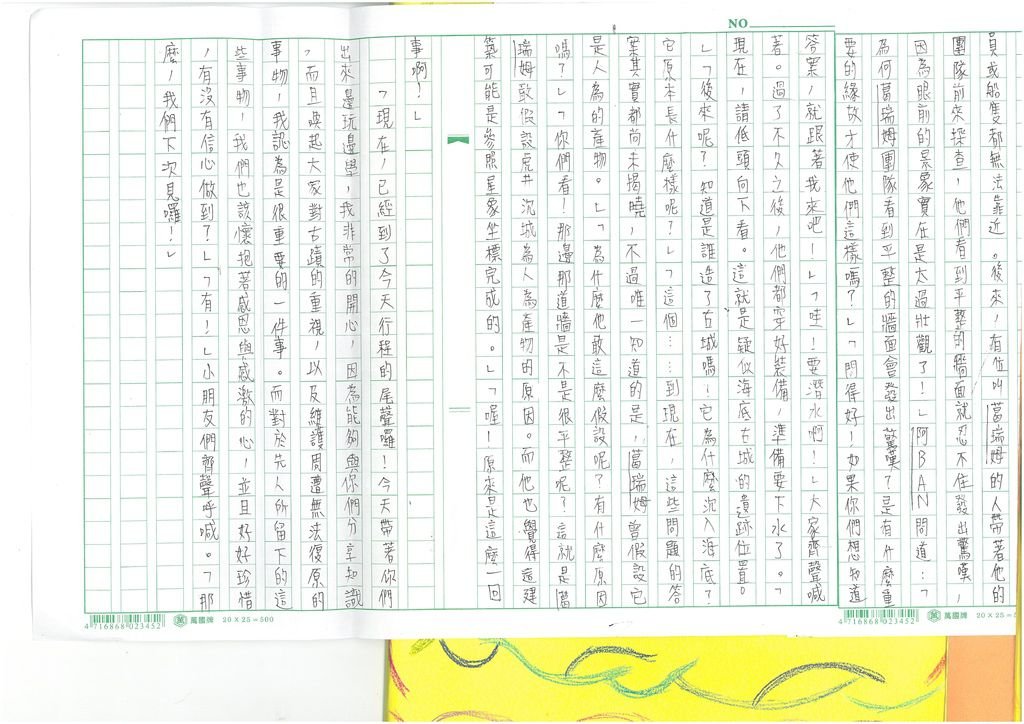 NO
員或船隻都無法靠近。後來，有位叫葛瑞姆的人帶著他的
團隊前來探查，他們看到平整的牆面就忍不住發出驚嘆，
因為眼前的景象實在是太過壯觀了！」阿BAN問道：「
為何葛瑞姆團隊看到平整的牆面會發出驚嘆？是有什麼重
要的緣故才使他們這樣嗎？」「問得好！如果你們想知道
答案，就跟著我來吧！」「哇！要潛水啊！」大家齊聲喊
著。過了不久之後，他們都穿好裝備，準備要下水了。「
現在，請低頭向下看。這就是疑似海底古城的遺跡位置。
」「後來呢？知道是誰造了古城嗎？它為什麼沉入海底？
它原本長什麼樣呢？」「這個……到現在，這些問題的答
案其實都尚未揭曉，不過唯一知道的是，葛瑞姆曾假設它
是人為的產物。」「為什麼他敢這麼假設呢？有什麼原因
嗎？」「你們看！那邊那道牆是不是很平整呢？這就是葛
瑞姆敢假設虎井沉城為人為產物的原因。而他也覺得這建
築可能是參照星象坐標完成的。」「喔！原來是這麼一回
事啊！」
「現在，已經到了今天行程的尾聲囉！今天帶著你們
出來邊玩邊學，我非常的開心，因為能夠與你們分享知識
，而且喚起大家對古蹟的重視，以及維護周遭無法復原的
事物，我認為是很重要的一件事。而對於先人所留下的這
些事物，我們也該懷抱著感恩與感激的心，並且好好珍惜
，有沒有信心做到？」「有！」小朋友們齊聲呼喊。「那
麼，我們下次見囉！」
4 716868 023452
萬國牌 20 X 25 = 500
4 716868 023452
萬國牌 20 X 25 = 5